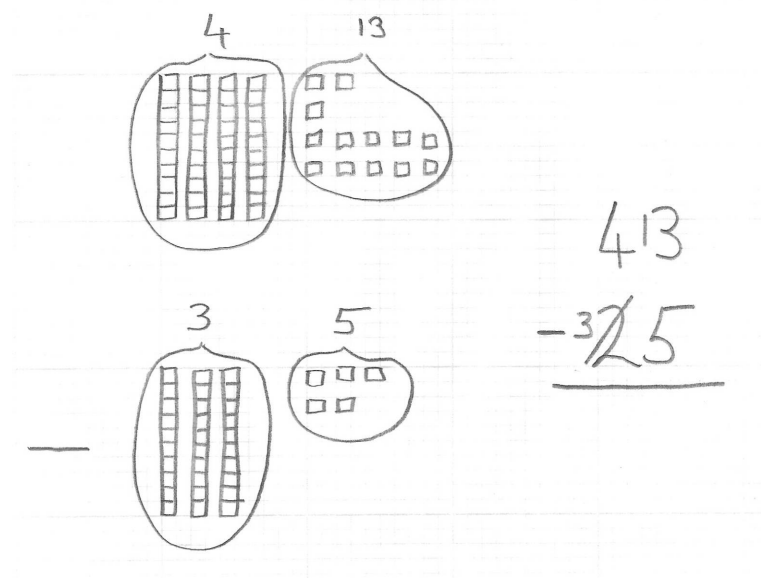 4 13
3 5
4 13
- 3 2 5